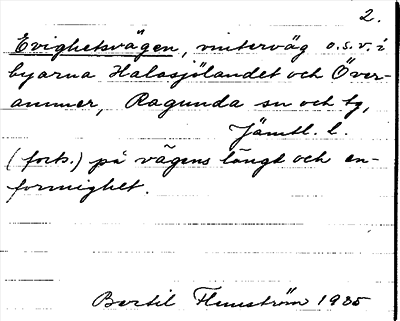 2.
Evighetsvägen, vinterväg o.s.v. i
byarna Halasjölandet och Över-
ammer, Ragunda sn och tg,
Jämtl. l.
(forts.) på vägens längt och en-
formighet.
Bertil Flemström 1935